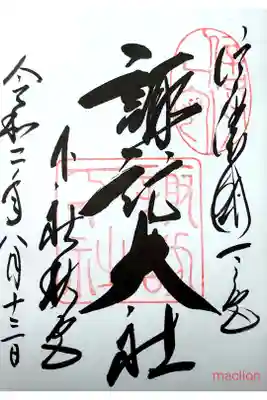 信濃國一之宮
諏訪大社
下社秋宮
令和二年八月十三日
maclian